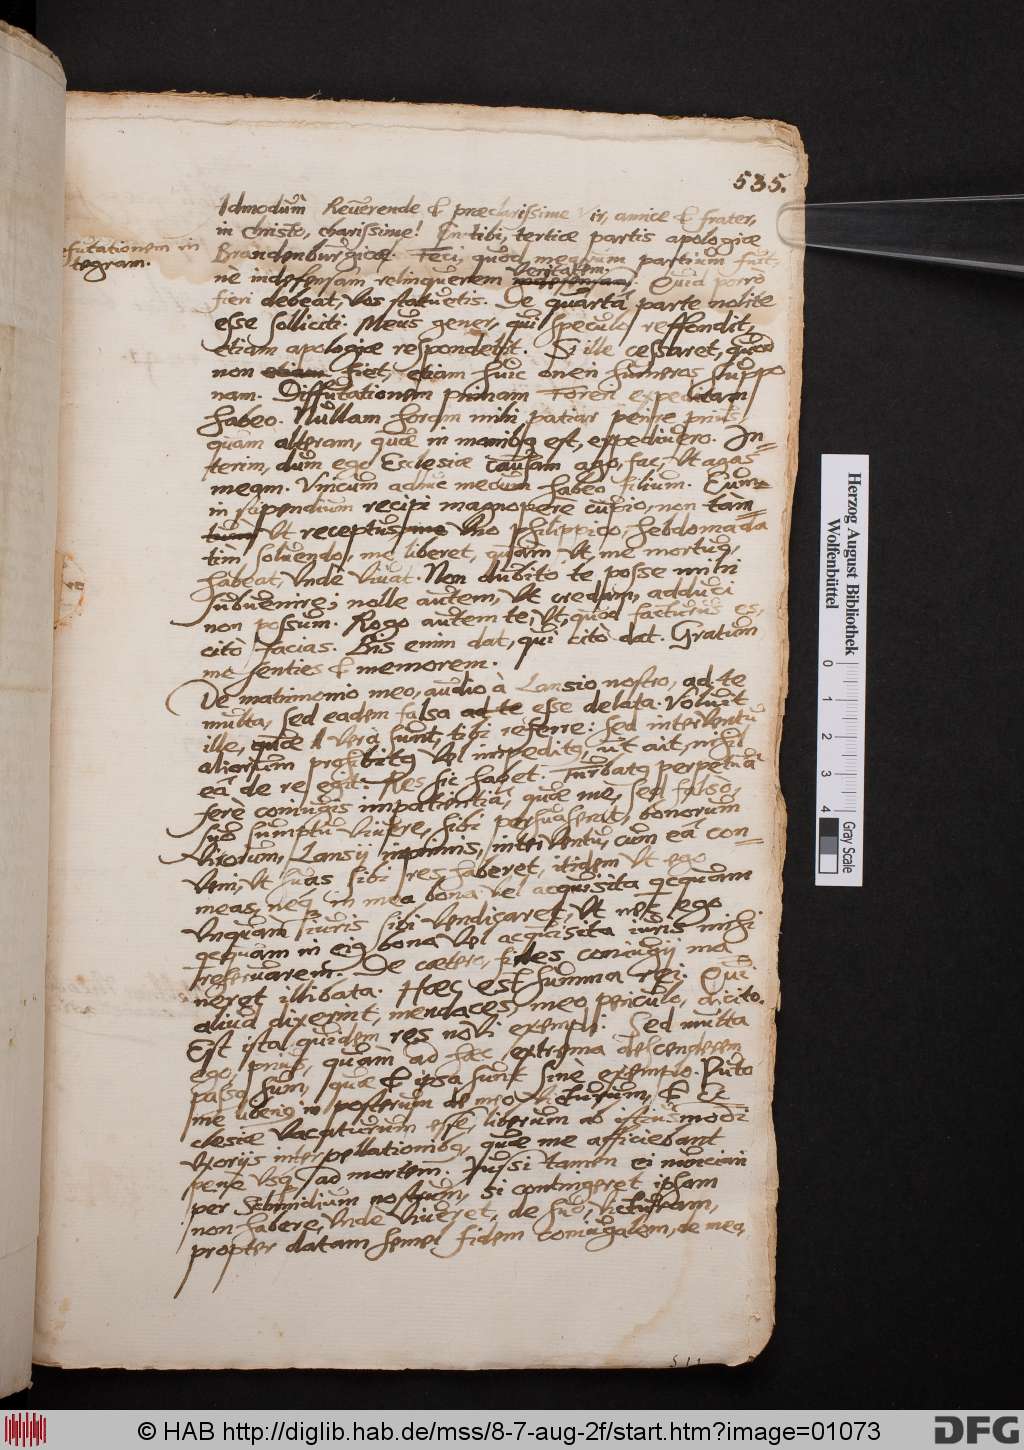 535.
Admodum Reverende & præclarissime Vir, amice & frater,
in Christo, charissime! En tibi, tertiæ partis apologiæ
Brandenburgicæ. Feci, quod mearum partium fuit,
ne indefensam relinquerem veritatem. Quid porrò
fieri debeat, Vos statuetis. De quarta parte nolite
esse solliciti. Meus gener, qui speculo respondit,
etiam apologiæ respondebit. Si ille cessaret, quod
non etiam fiet, etiam huic oneri humeros suppo
nam. Disputationem primam expeditam
habeo. Nullam horam mihi patiar perire prius,
quàm alteram, quæ in manibus est, expedivero. In-
terim, dum ego Ecclesiæ causam ago, fac, Vt agas
meam. Vnicum adhuc mecum habeo filium. Eum
in stipendium recipi magnoperè cupio, non tàm
Vt receptus Vno philippico, hebdomada
tim, solvendo, me liberet, quàm Vt, me mortuo,
habeat, Vnde Vivat. Non dubito te posse mihi
subvenire; nolle autem, Vt credam, adduci
non possum. Rogo autem te, Vt, quod facturus es,
citò facias. Bis enim dat, qui citò dat. Gratum
me senties & memorem.
De matrimonio meo, audio à Lansio nostro, ad te
multa, sed eadem falsa ad te esse delata. Voluit
ille, quæ Vera sunt, tibi referre: sed interventu
aliorum prohibitus Vel impeditus, ut ait, nihil
eâ de re egit. Res sic habet. Turbatus perpetuâ
ferè coniugis impatientiâ, quæ me, sed falsò,
suo sumptu Vivere, sibi persuaserat, bonorum
Virorum, Lansij inprimis, interventu, cum eâ con-
veni, Vt suas sibi res haberet, itidem Vt ego
meas, neque in mea bona vel acquisita quicquam
Vnquam iuris sibi Vendicaret, Vt nec ego
quicquam in eius bona Vel acquisita iuris mihi
reservarem. De cætero, fides coniugij ma
neret illibata. Hæc est summa rei. Qui
aliud dixerint, mendaces, meo periculo, dicito.
Est ista quidem res novi exempli. Sed multa
ego, prius, quàm ad hæc extrema descenderem
passus sum, quæ & ipsa sunt sine exemplo. Puto
me in posterum de meo victurum, & Ec
clesiæ vacaturum esse, liberum ab istiusmodi
Vxorijs interpellationibus, quæ me afficiebant
pene Vsque ad mortem. Iussi tamen ei nunciari
per Schmidium nostrum, si contingeret ipsam
non habere, Vnde Viveret, de suo, victuram,
propter datam semel fidem coniugalem, de meo,
refutationem in
tegram.
Herzog August Bibliothek
Wolfenbüttel
0 1 2 3 4
Gray Scale
© HAB http://diglib.hab.de/mss/8-7-aug-2f/start.htm?image=01073
DFG